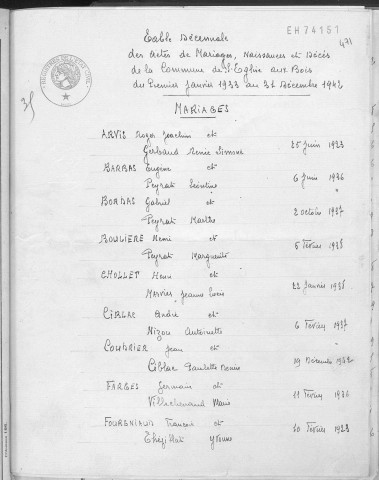 EH 74151
471
Table Décennale
des Actes de Mariages, Naissances et Décès
de la Commune de St Eglise aux Bois
du Premier Janvier 1933 au 31 Décembre 1942
MARIAGES
ARVIS Roger Joachim et
Gerbaud Renée Simone 25 Juin 1933
BARBAS Eugène et
Peyrat Léontine 6 Juin 1936
BORDAS Gabriel et
Peyrat Marthe 2 Octobre 1937
BOULIERE Henri et
Peyrat Marguerite 5 Février 1938
CHOLLET Henri et
MARVIER Jeanne 22 Janvier 1938
CIBLAC André et
Nizou Antoinette 6 Février 1937
COUDRIER Jean et
Ciblac Paulette Denise 19 Décembre 1942
FARGES Germain et
Villachenoud Marie 11 Février 1936
François et
Yvonne 10 Février 1923